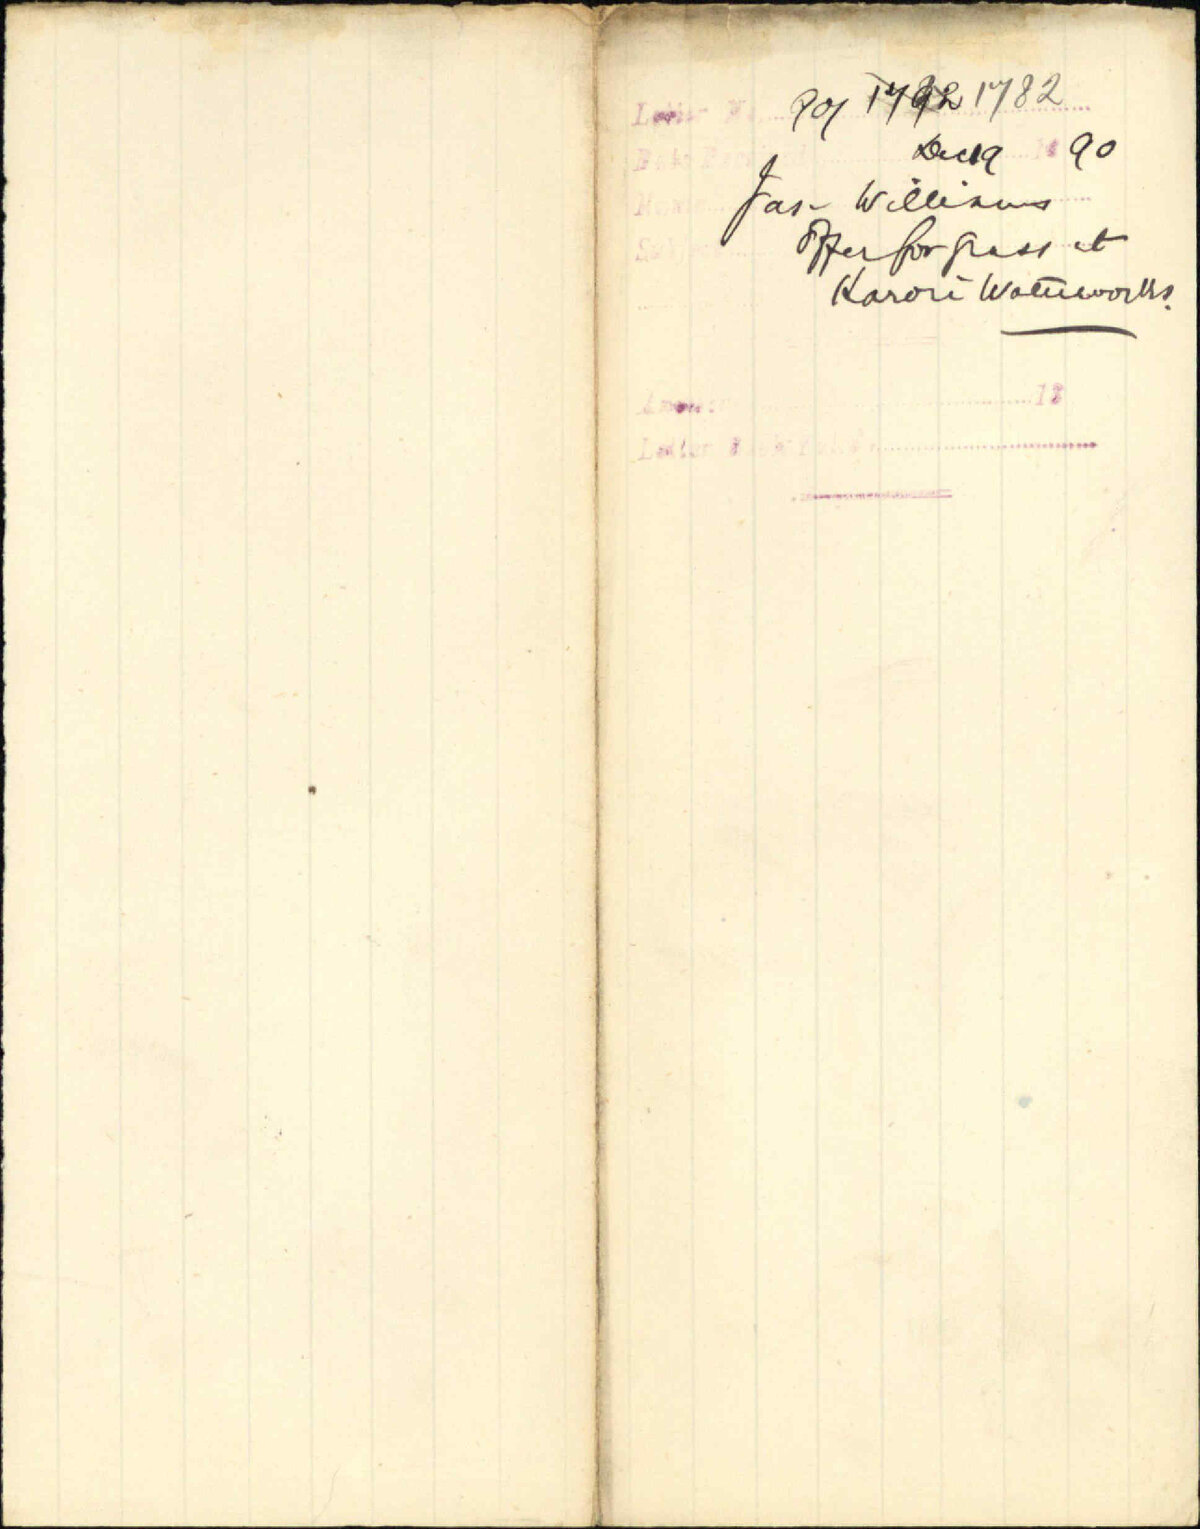 Letter No. 90/ 1792 1782
Date Received Dec 19 18 90
Name Jas- Williams
Subject Offer for grass at
Karori Waterworks.
Answered 18
Letter Book Folio